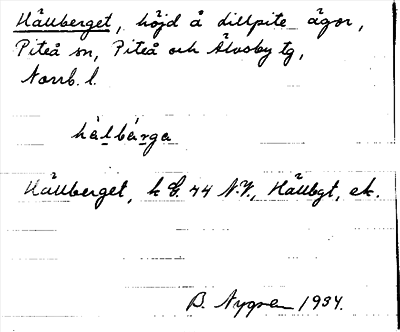 Hällberget, höjd å Lillpite ägor,
Piteå sn, Piteå och Älvsby tg,
Norrb. l.
hälbärga
Hällberget, k E. 44 N.V., Hällbgt, ek.
B. Nygren 1934.